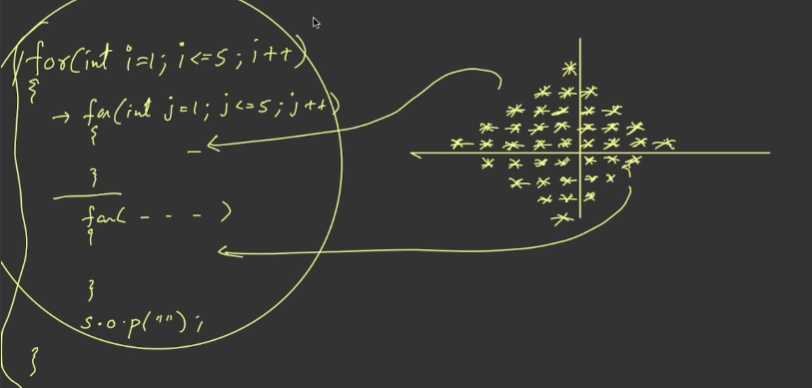 for(int i=1; i<=5; i++)
{
→ for(int j=1; j<=5; j++)
{
_
}
for( - - - )
{
}
s.o.p("");
}
*
* * *
* * * * *
* * * * * * *
* * * * * * * * *
* * * * * * *
* * * * *
* * *
*